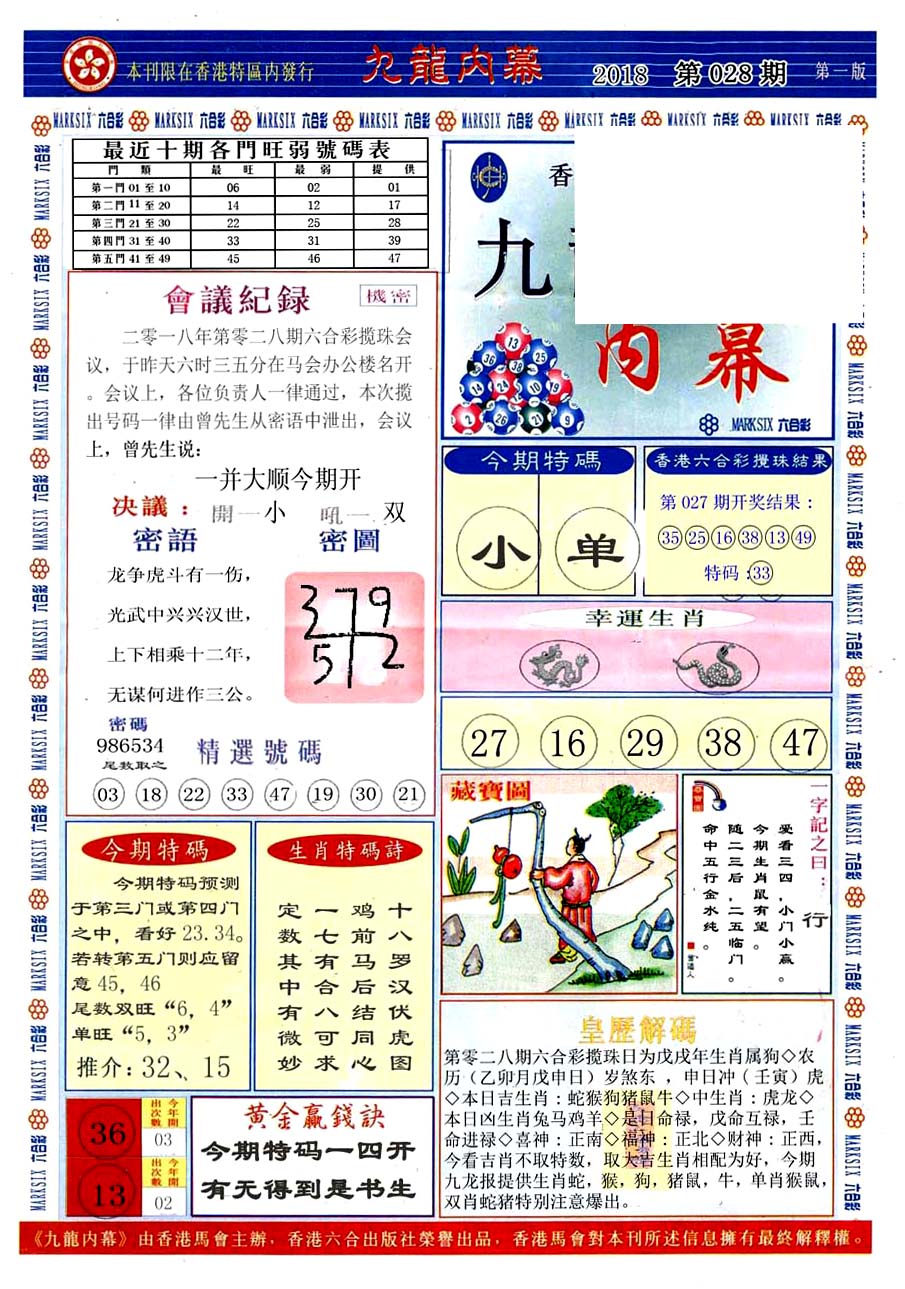 本刊限在香港特區內發行
九龍內幕
2018 第028期
第一版
MARKSIX 六合彩 MARKSIX 六合彩 MARKSIX 六合彩 MARKSIX 六合彩 MARKSIX 六合彩 MARKSIX 六合彩 MARKSIX 六合彩 MARKSIX 六合彩
最近十期各門旺弱號碼表
門 類 最 旺 最 弱 提 供
第一門 01 至 10 06 02 01
第二門 11 至 20 14 12 17
第三門 21 至 30 22 25 28
第四門 31 至 40 33 31 39
第五門 41 至 49 45 46 47
會議紀録
機密
二零一八年第零二八期六合彩揽珠会
议，于昨天六时三五分在马会办公楼名开
。会议上，各位负责人一律通过，本次揽
出号码一律由曾先生从密语中泄出，会议
上，曾先生说：
一并大顺今期开
决議： 開一小 吼一双
密語
龙争虎斗有一伤，
光武中兴兴汉世，
上下相乘十二年，
无谋何进作三公。
密圖
379
5 2
密碼
986534
尾数取之
精選號碼
03 18 22 33 47 19 30 21
香
九
内幕
13
36 25
38
14 24 10 19
2 26 21 9
MARKSIX 六合彩
今期特碼
小 单
香港六合彩攪珠結果
第 027 期开奖结果：
35 25 16 38 13 49
特码：33
幸運生肖
27 16 29 38 47
今期特碼
今期特码预测
于第三门或第四门
之中，看好 23.34。
若转第五门则应留
意 45，46
尾数双旺“6，4”
单旺“5，3”
推介：32、15
生肖特碼詩
十八罗汉伏虎图
鸡前马后结同心
一七有合八可求
定数其中有微妙
藏寶圖
一字記之曰：行
爱看三四，小门小赢。
今期生肖鼠有望。
随二三后，二五临门。
命中五行金水纯。
皇歷解碼
第零二八期六合彩揽珠日为戊戌年生肖属狗◇农
历（乙卯月戊申日）岁煞东 ，申日冲（壬寅）虎
◇本日吉生肖：蛇猴狗猪鼠牛◇中生肖：虎龙◇
本日凶生肖兔马鸡羊◇是日命禄，戊命互禄，壬
命进禄◇喜神：正南◇福神：正北◇财神：正西，
今看吉肖不取特数，取大吉生肖相配为好，今期
九龙报提供生肖蛇，猴，狗，猪鼠，牛，单肖猴鼠，
双肖蛇猪特别注意爆出。
36
今年開出次數
03
13
今年開出次數
02
黄金赢錢訣
今期特码一四开
有无得到是书生
《九龍内幕》由香港馬會主辦，香港六合出版社榮譽出品，香港馬會對本刊所述信息擁有最終解釋權。